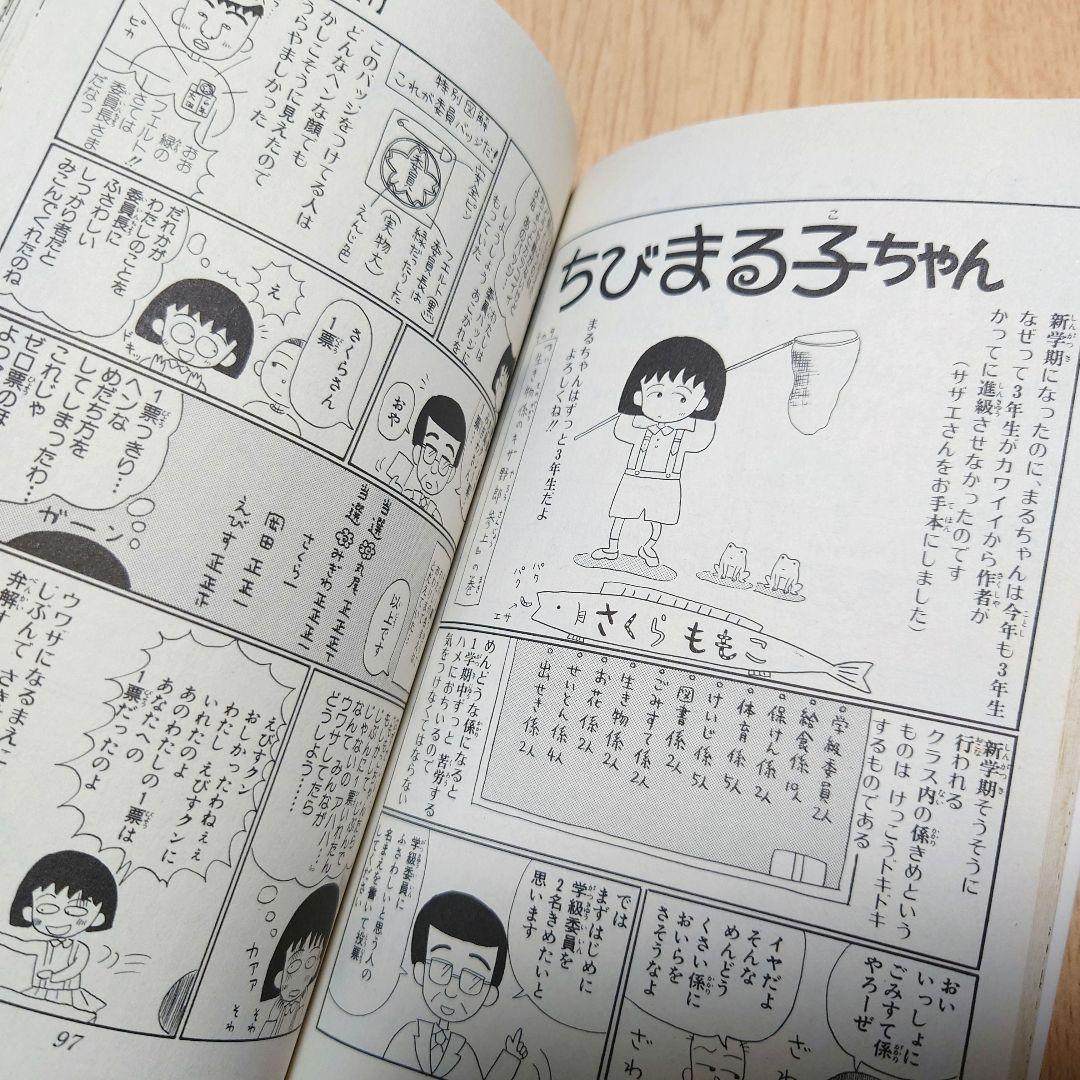 ちびまる子ちゃん
新学期になったのに、まるちゃんは今年も3年生
なぜって3年生がカワイイから作者が
かってに進級させなかったのです
(サザエさんをお手本にしました)
まるちゃんはずっと3年生だよ
よろしくね!!
パク
パク
エサ
さくらももこ
新学期そうそうに
行われる
クラス内の係きめという
ものは けっこうドキドキ
するものである
学級委員 2人
給食係 10人
保けん係 2人
体育係 5人
けいじ係 5人
図書係 2人
ごみすて係 2人
生き物係 2人
お花係 2人
せいとん係 4人
出せき係 2人
めんどうな係になると
1学期中ずっと苦労する
ハメにおちいるので
気をつけなくてはならない
おい
いっしょに
ごみすて係
やろーぜ
イヤだよ
そんな
めんどう
くさい係に
おいらを
さそうなよ
ざ
ざわ
では
まずはじめに
学級委員を
2名きめたいと
思います
学級委員に
ふさわしいと思う人の
名まえを書いて投票
してください
特別図解
これが委員バッジだ!
安全ピン
委員
フェルト(黒)
委員長は
緑だったりした
(実物大)
えんじ色
このバッジをつけてる人は
どんなヘンな顔でも
かしこそうに見えたので
うらやましかった
ピカ
おお
緑の
フェルト
さては!!
委員長さま
だなっ
おや
さくらさん
1票
え
キッ
だれかが
わたしのことを
委員長に
ふさわしい
しっかり者だと
みこんでくれたのね
以上です
当選 丸尾 正正正正
当選 みぎわ 正正正
さくら 一
岡田 正正一
えびす 正正
1票っきり…
ヘンな
めだち方を
してしまったわ…
これじゃ
ゼロ票のほ
ガーン
どうしよう…
カアァ
そわ
そわ
ウワサになるまえに
じぶんで さきに
弁解
えびすクン
おしかったわねぇ
わたし えびすクンに
いれたのよ
あのわたしの1票は
あなたへの
1票だったのよ
97